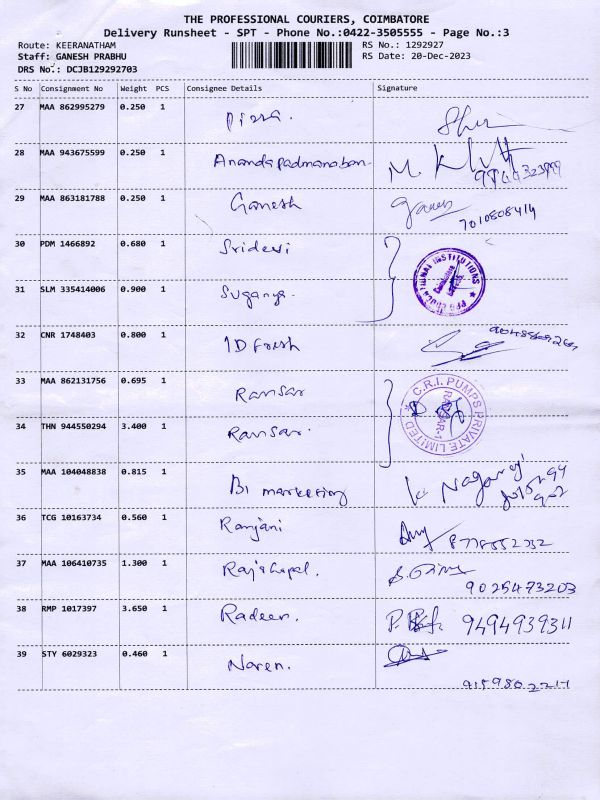 THE PROFESSIONAL COURIERS, COIMBATORE
Delivery Runsheet - SPT - Phone No.:0422-3505555 - Page No.:3
Route: KEERANATHAM RS No.: 1292927
Staff: GANESH PRABHU RS Date: 20-Dec-2023
DRS No.: DCJB129292703
S No Consignment No Weight PCS Consignee Details Signature
27 MAA 862995279 0.250 1
28 MAA 943675599 0.250 1 Anandapadmanaban
29 MAA 863181788 0.250 1 Ganesh
7010808414
30 PDM 1466892 0.680 1 Sridevi
31 SLM 335414006 0.900 1 Suganya
32 CNR 1748403 0.800 1 ID Fresh
33 MAA 862131756 0.695 1 Ransar
C.R.I. PUMPS PRIVATE LIMITED
34 THN 944550294 3.400 1 Ransar
35 MAA 104048838 0.815 1 B1 marketing
36 TCG 10163734 0.560 1 Ranjani
37 MAA 106410735 1.300 1
9025473203
38 RMP 1017397 3.650 1 Radeer. 9494939311
39 STY 6029323 0.460 1 Naren.